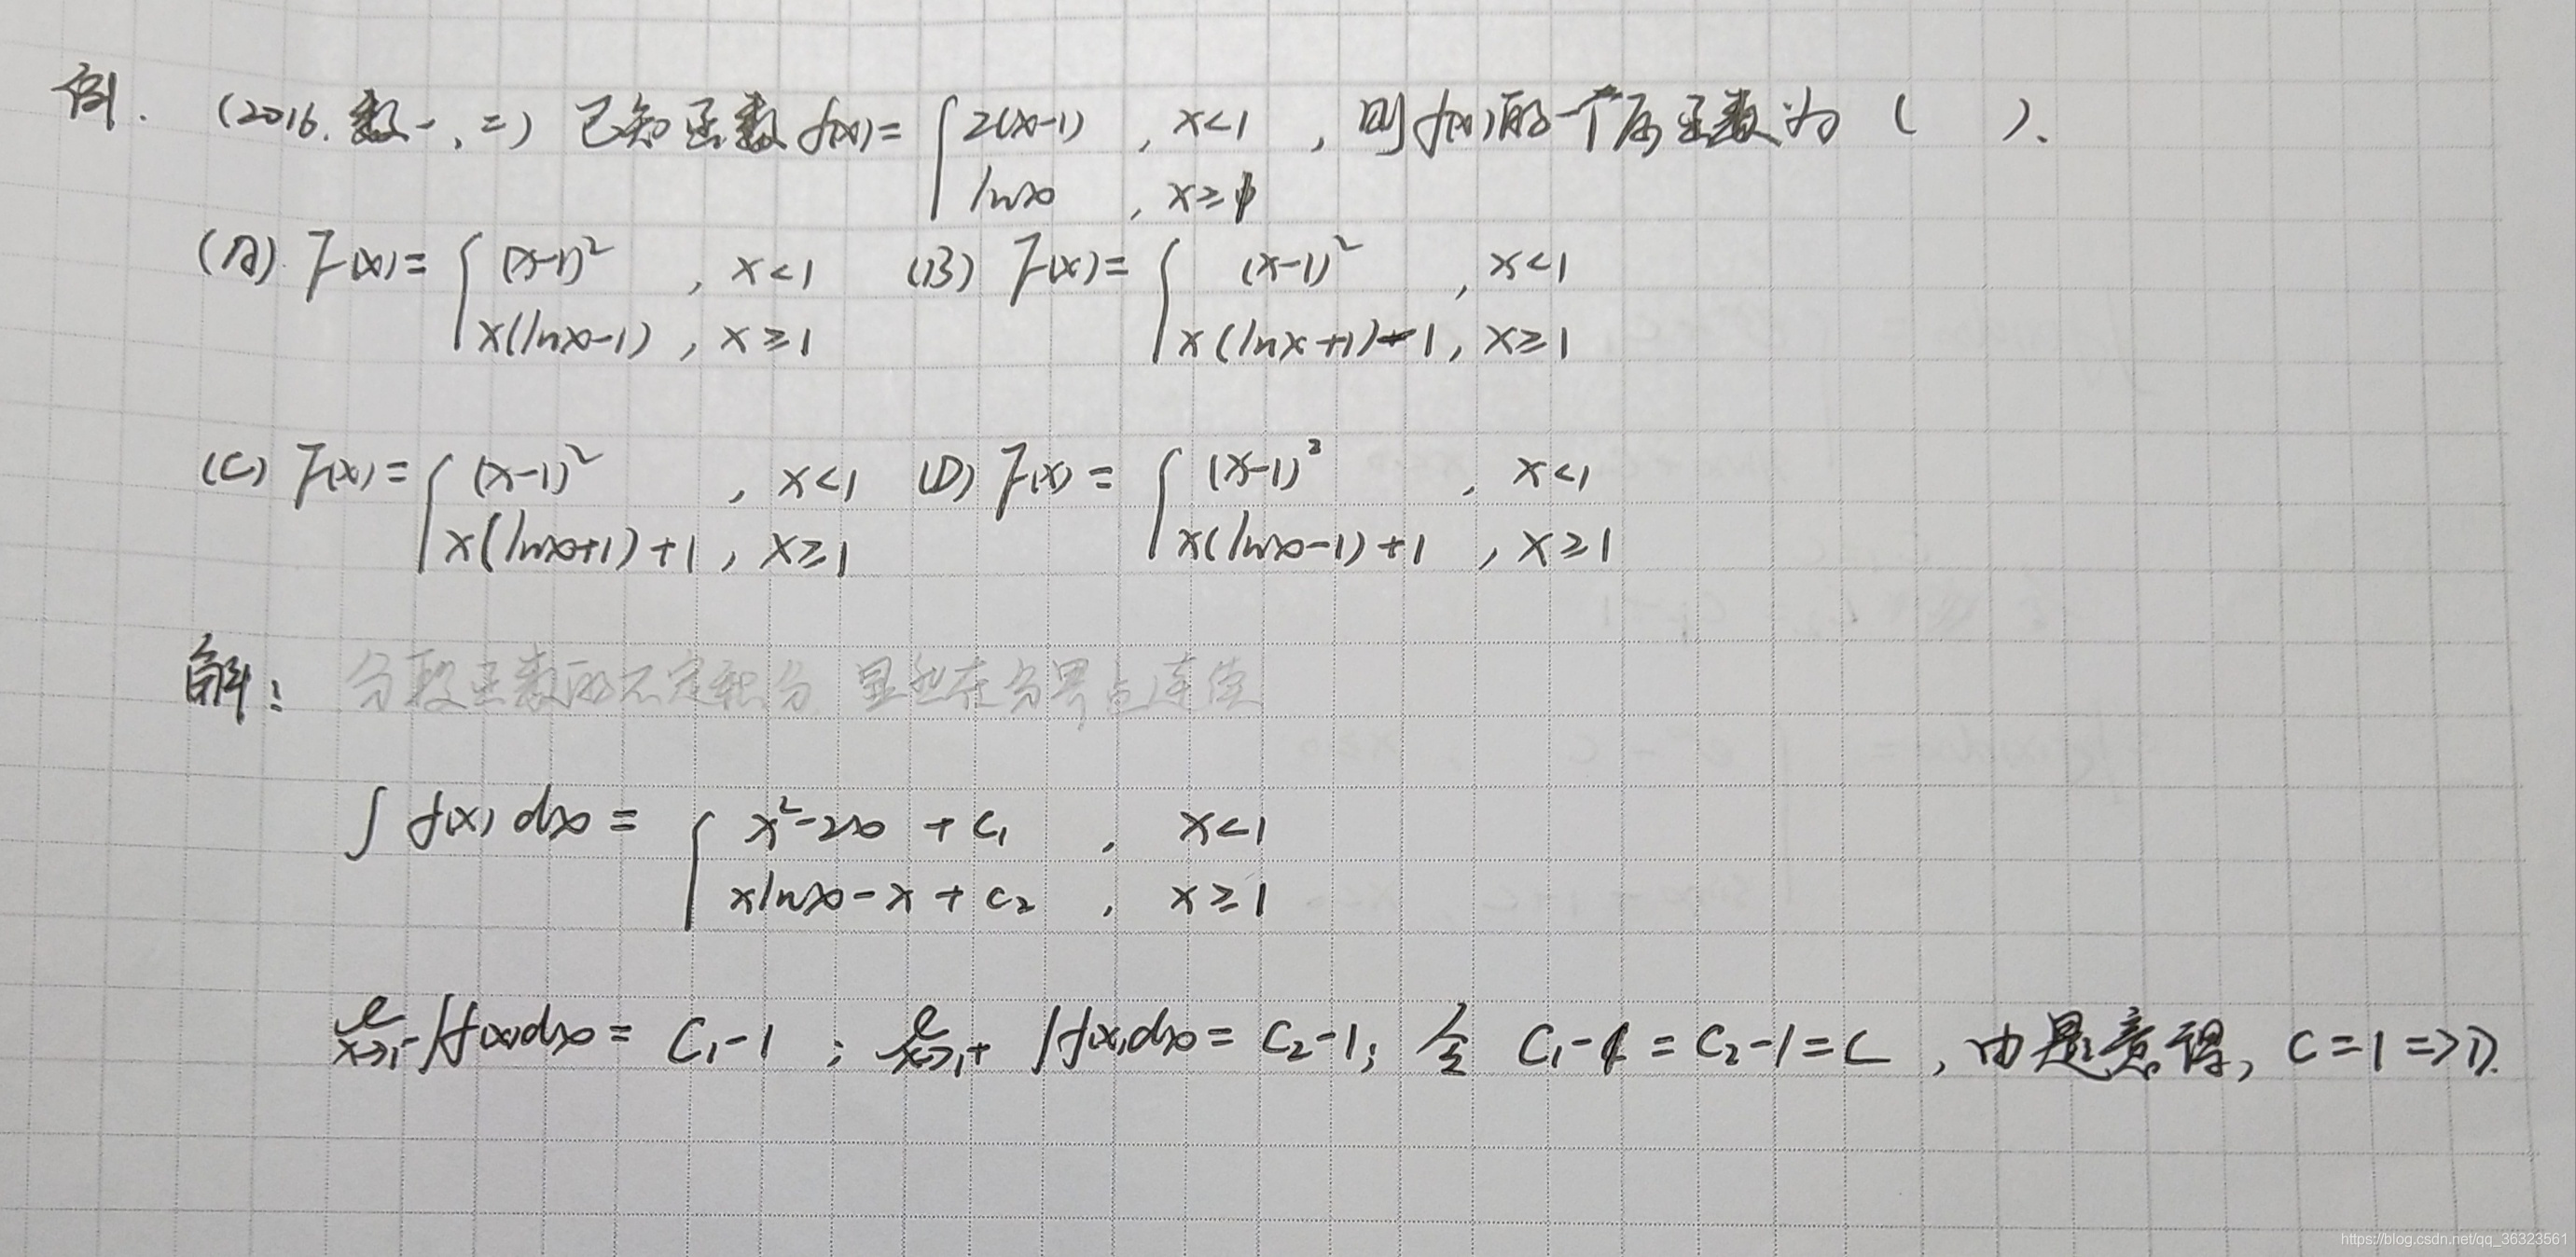 例. (2016.数一,二) 已知函数 f(x)= { 2(x-1) , x<1 , 则f(x)的一个原函数为 ( ).
lnx , x≥1
(A). F(x)= { (x-1)² , x<1 (B) F(x)= { (x-1)² , x<1
x(lnx-1) , x≥1 x(lnx+1)-1, x≥1
(C) F(x)= { (x-1)² , x<1 (D) F(x)= { (x-1)² , x<1
x(lnx+1)+1 , x≥1 x(lnx-1)+1 , x≥1
解: 分段函数的不定积分 显然在分界点连续
∫ f(x) dx = { x²-2x + C₁ , x<1
xlnx-x+C₂ , x≥1
lim x→1⁻ ∫f(x)dx = C₁-1 ; lim x→1+ ∫f(x)dx = C₂-1; 令 C₁-1 = C₂-1=C , 由题意得, C=1 => D.
https://blog.csdn.net/qq_36323561